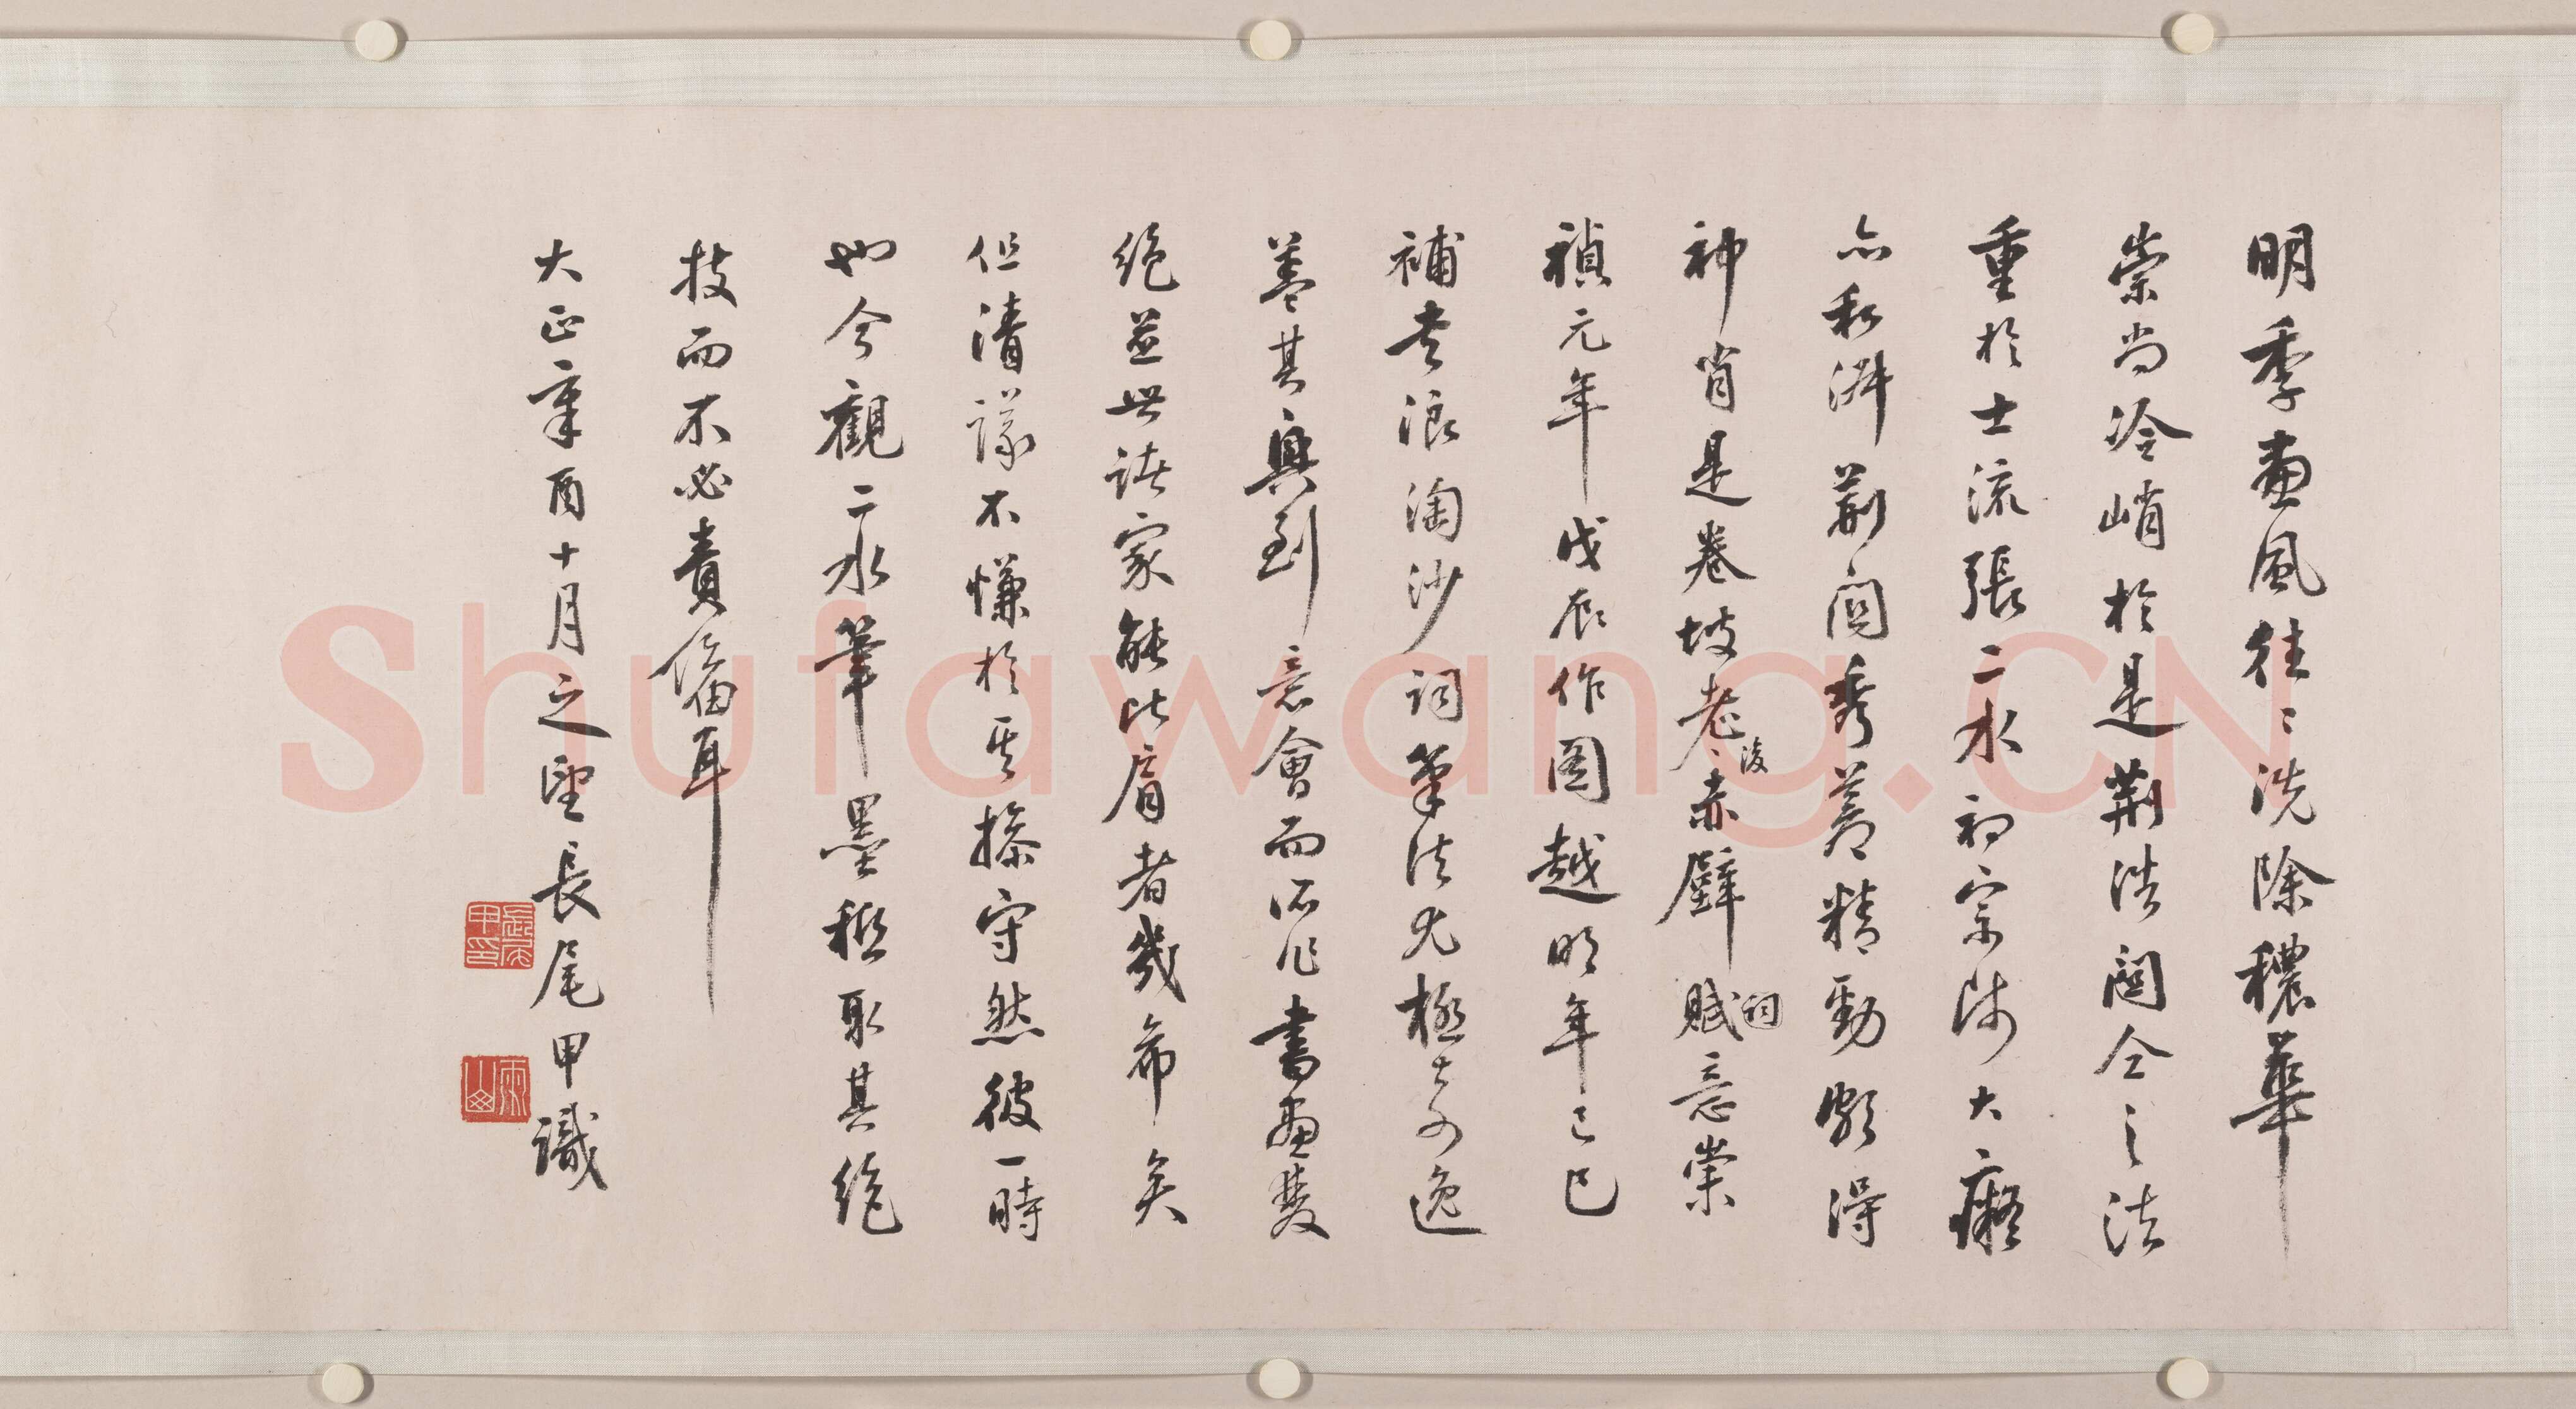 明季畫風往〻洗除穠華
崇尚冷峭於是荆浩關仝之法
重於士流張二水初宗師大癡
亦私淑荊關秀蒼精勁頗得
神肖是卷坡老後赤壁賦詞意崇
禎元年戊辰作圖越明年己巳
補書浪淘沙詞筆法尤極奇逸
蓋其興到意會而所作書畫雙
絕並世諸家能比肩者幾希矣
但清議不慊於其操守然彼一時
也今觀二水筆墨極取其絕
技而不必責備耳
大正辛酉十月之望長尾甲識
長尾甲印
雨山
Shufawang.CN